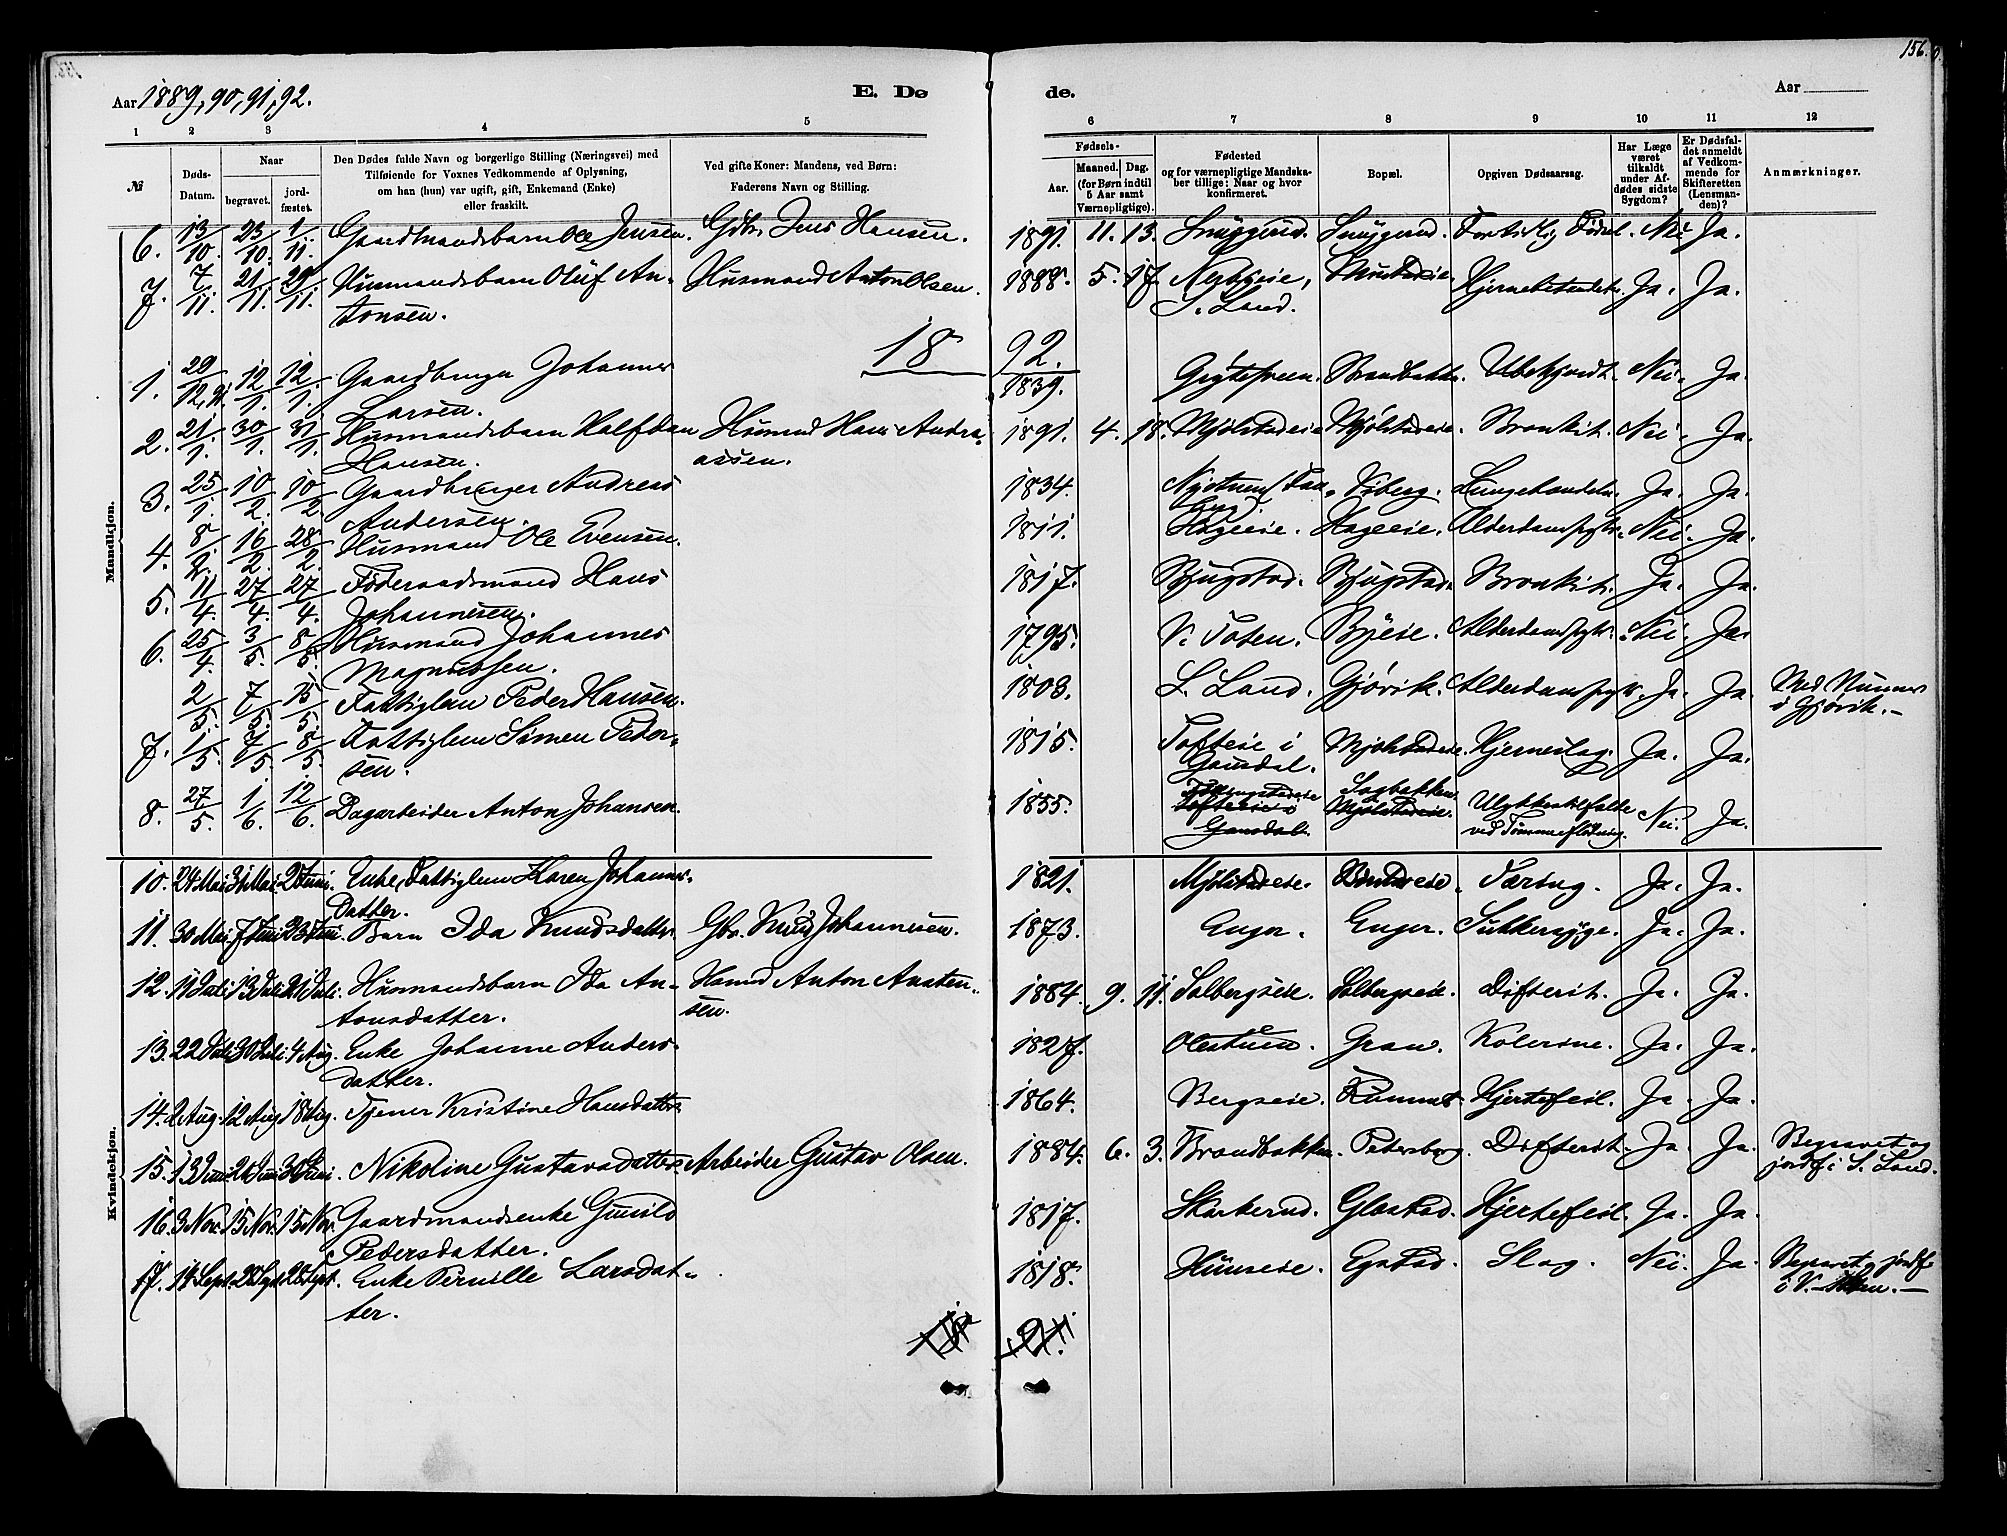 156.
Aar 1889, 90, 91, 92.
E. Dø
de.
Aar
1 2 3 4 5 6 7 8 9 10 11 12
№
Døds-Datum.
Naar
begravet.
jordfæstet.
Den Dødes fulde Navn og borgerlige Stilling (Næringsvei) med
Tilføiende for Voxnes Vedkommende af Oplysning,
om han (hun) var ugift, gift, Enkemand (Enke)
eller fraskilt.
Ved gifte Koner: Mandens, ved Børn:
Faderens Navn og Stilling.
Fødsels-
Aar.
Maaned. Dag.
(for Børn indtil
5 Aar samt
Værnepligtige).
Fødested
og for værnepligtige Mandskaber tillige: Naar og hvor
konfirmeret.
Bopæl.
Opgiven Dødsaarsag.
Har Læge
været
tilkaldt
under Afdødes sidste
Sygdom?
Er Dødsfaldet anmeldt
af Vedkommende for
Skifteretten
(Lensmanden)?
Anmærkninger.
Mandkjøn.
6. 13/10 23/10 1/11 Gaardmandsbarn Ole Jensen. Gdbr. Jens Hansen. 1891. 11. 13. Snuggerud. Snuggerud. Fortidlig Födsel. Nei Ja.
7. 7/11 21/11 29/11 Husmandsbarn Oluf An- Husmand Anton Olsen. 1888. 5. 17. Hjernebetændelse. Ja. Ja.
tonsen. S. Land.
1892.
1. 29/12, 91. 12/1. 12/1. Gaardbruger Johannes 1839. Brandbakken. Ubekjendt. Nei. Ja.
Larsen.
2. 21/1. 30/1. 31/1. Husmandsbarn Halfdan Husmd Hans Andre- 1891. 4. 18. Mjölstadeie Mjölstadeie. Bronkit. Nei. Ja.
Hansen. assen.
3. 25/1. 10/2. 10/2. Gaardbruger Andreas 1834. Viberg. Ja. Ja.
Andersen.
4. 8/2. 16/2. 28/2. Husmand Ole Evensen. 1811. Hageeie. Hageeie. Alderdomssvagh. Nei. Ja.
5. 11/4. 27/4. 27/4. Föderaadsmand Hans 1817. Bjugstad. Bjugstad. Bronkit. Ja. Ja.
Johannesen.
6. 25/4. 3/5. 8/5. Husmand Johannes 1795. V. Toten. Byeie. Alderdomssvagh. Nei. Ja.
Magnussen.
2/5. 7/5. 15/5. Fattiglem Peder Hansen. 1808. S. Land. Gjövik. Alderdomssvagh. Ja. Ja. Med Numer
i Gjövik.
7. 1/5 7/5 8/5 Fattiglem Simen Peder- 1815. Tofteeie i Mjölstadeie. Hjerneslag. Ja. Ja.
sen. Gausdal.
8. 27/5. 1/6. 12/6. Dagarbeider Anton Johansen. 1855. Tofteeie i Sagbakken. Ulykkestilfælde Nei. Ja.
Gausdal. Mjölstadeie. ved Tömmerflödning.
Kvindekjøn.
10. 24 Mai 31 Mai 2 Juni. Enke, Fattiglem Karen Johannes- 1821. Mjölstadeie. Tæring. Ja. Ja.
Datter.
11. 30 Mai 7 Juni 23 Juni. Barn Ida Knudsdatter. Gbr. Knud Johannesen. 1873. Enger. Enger. Sukkersyge. Ja. Ja.
12. 11 Juli 13 Juli 21 Juli. Husmandsbarn Ida An- Husmd Anton Ansten- 1884. 9. 11. Solbergseie. Solbergseie. Difterit. Ja. Ja.
tonsdatter. sen.
13. 22 Juli 30 Juli. 4 Aug. Enke Johanne Anders- 1827. Olestuen. Gran. Kolerine. Ja. Ja.
datter.
14. 2 Aug. 12 Aug 18 Aug. Tjener Kristine Hansdatter 1864. Bergseie. Hjertefeil. Ja. Ja.
15. 13 Juni. Nikoline Gustavsdatter Arbeider Gustav Olsen. 1884. 6. 3. Brandbakken. Petersborg. Difterit. Ja Ja. Begravet og
jordf. i S. Land.
16. 3 Nov. 15 Nov. 15 Nov. Gaardmandsenke Gunild 1817. Skikerud. Glæstad. Hjertefeil. Ja. Ja.
Pedersdatter.
17. 14 Sept. 28 Sept 28 Sept. Enke Pernille Larsdat- 1818. Hunseie. Egstad. Slag. Nei. Ja. Begravet og jordf.
ter. i V. Toten.